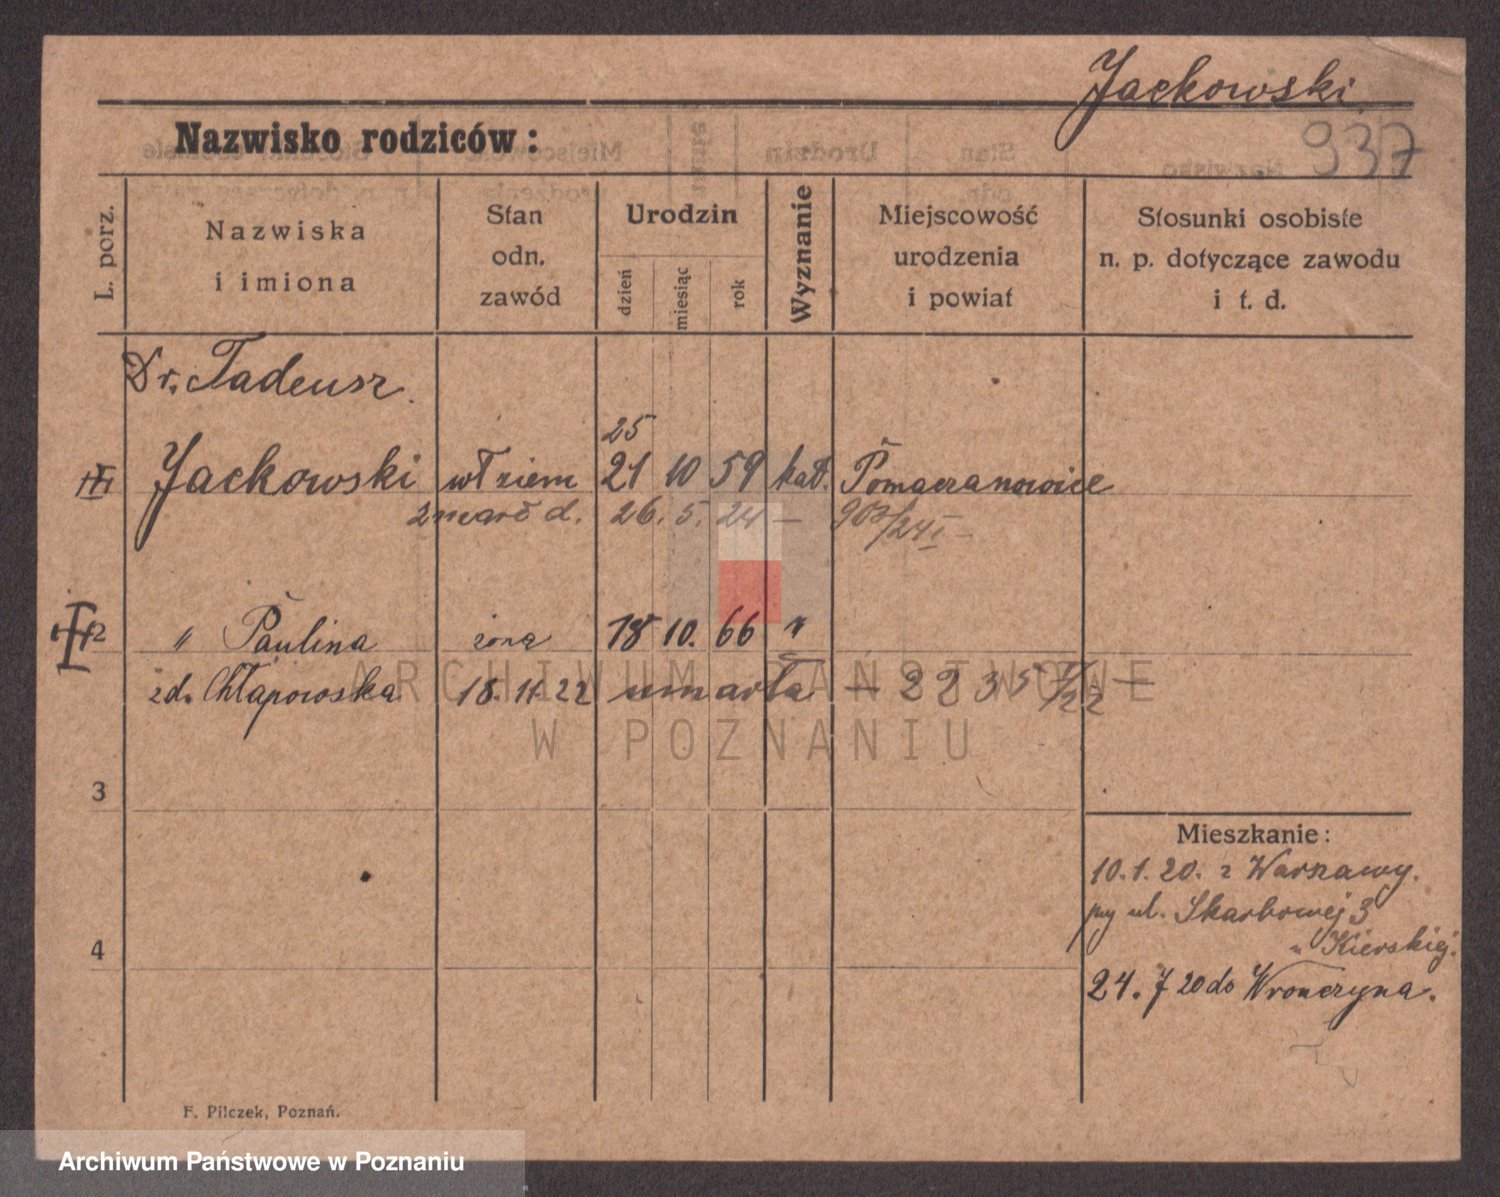 Jackowski
937
Nazwisko rodziców:
L. porz.
Nazwiska
i imiona
Stan
odn.
zawód
Urodzin
dzień
miesiąc
rok
Wyznanie
Miejscowość
urodzenia
i powiat
Stosunki osobiste
n. p. dotyczące zawodu
i t. d.
Dr. Tadeusz
25
Jackowski wł ziem 21 10 59 kat. Pomarzanowice
zmarł d. 26. 5. 24 — 903/24 I —
2 " Paulina żona 18 10. 66 "
zd. Chłapowska 18. 11. 22 umarła — 2235 /22 —
ARCHIWUM PAŃSTWOWE
W POZNANIU
3
Mieszkanie:
10. 1. 20. z Warszawy.
przy ul. Skarbowej 3
" Kierskiej.
4
24. 7 20 do Wronczyna.
F. Pilczek, Poznań.
Archiwum Państwowe w Poznaniu